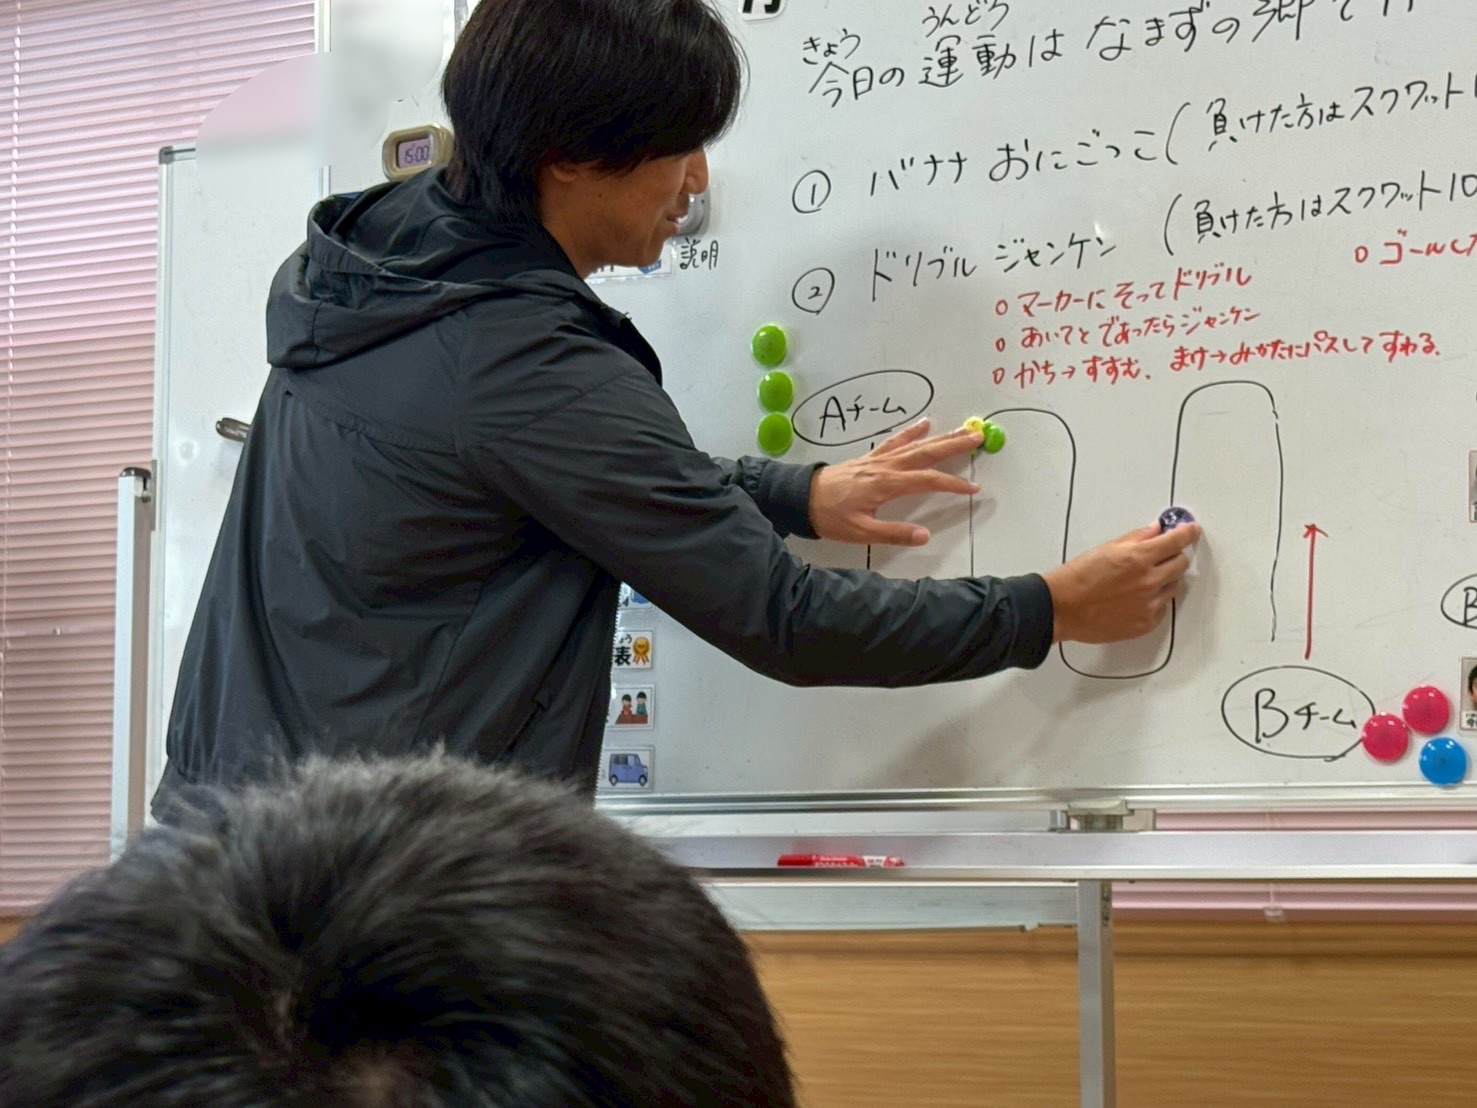 きょう うんどう
今日の運動はなまずの郷で
15:00
① バナナおにごっこ(負けた方はスクワット1
説明
② ドリブルジャンケン (負けた方はスクワット10
○ゴールした
○マーカーにそってドリブル
○あいてとであったらジャンケン
○かち→すすむ、まけ→みかたにパスしてすわる。
Aチーム
B
表
Bチーム